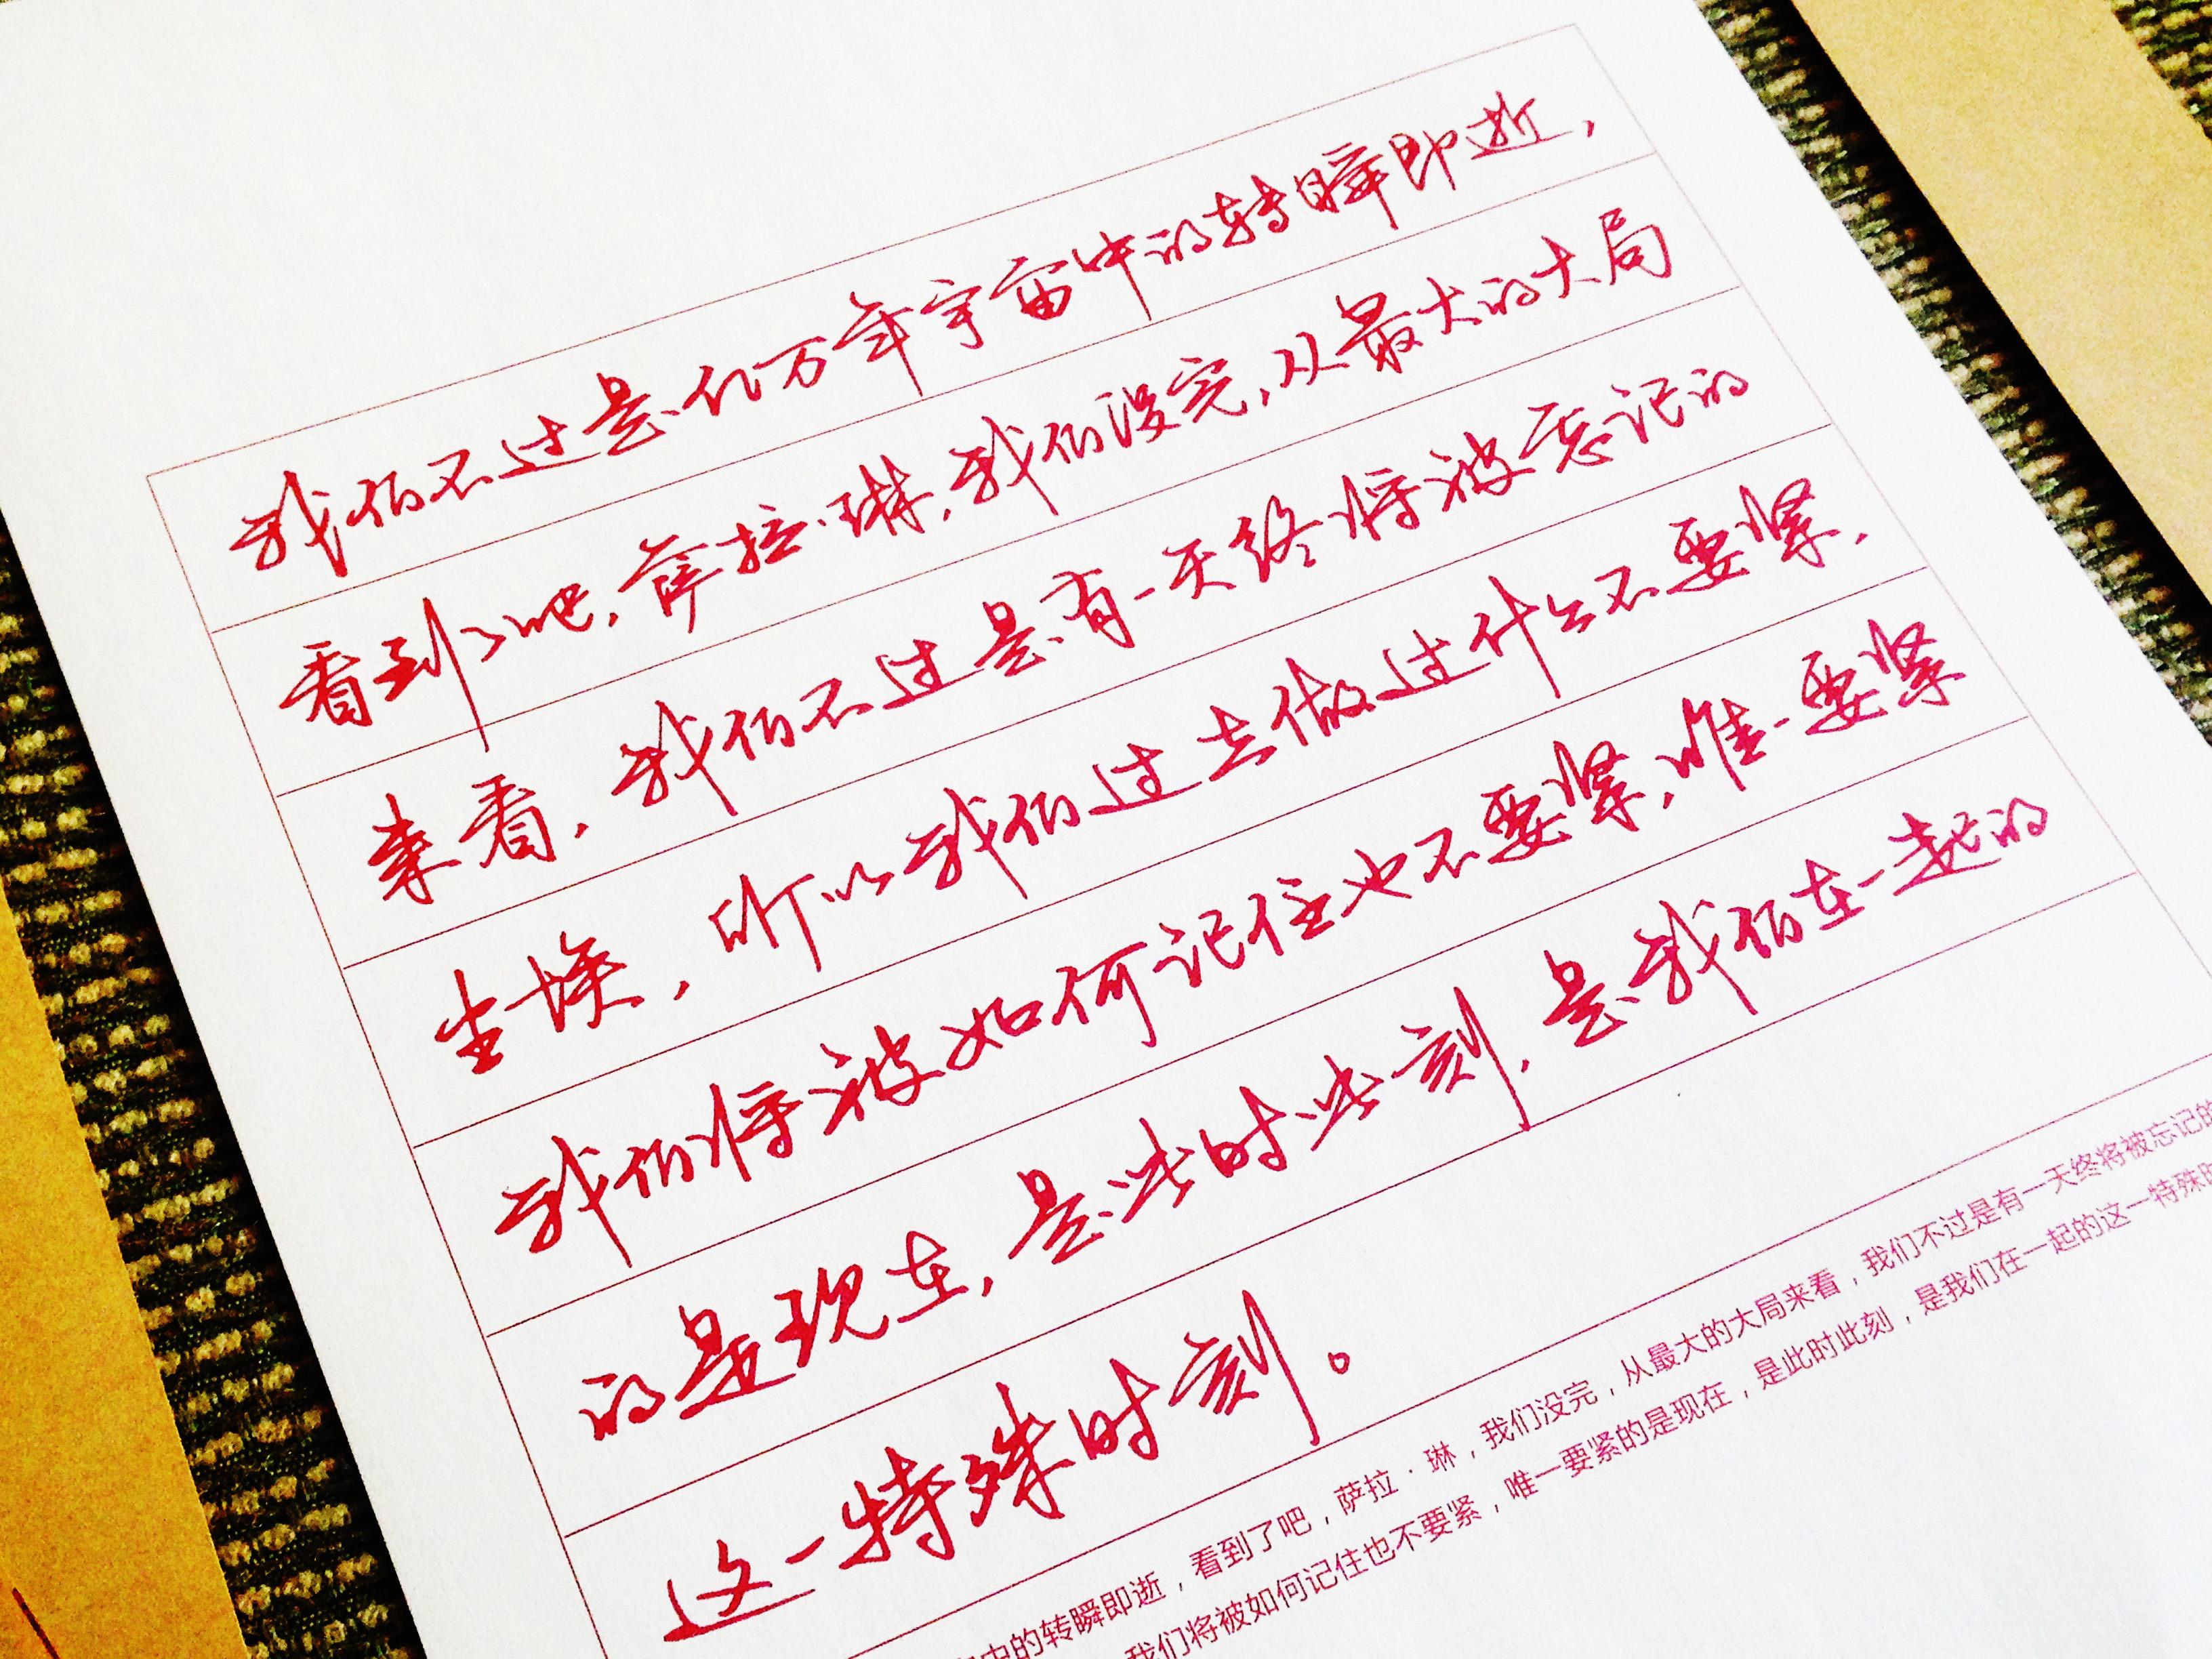 我们不过是亿万年宇宙中的转瞬即逝，
看到了吧，萨拉·琳，我们没完，从最大的大局
来看，我们不过是有一天终将被忘记的
尘埃，所以我们过去做过什么不要紧，
我们将被如何记住也不要紧，唯一要紧
的是现在，是此时此刻，是我们在一起的
这一特殊时刻。
中的转瞬即逝，看到了吧，萨拉·琳，我们没完，从最大的大局来看，我们不过是有一天终将被忘记的
我们将被如何记住也不要紧，唯一要紧的是现在，是此时此刻，是我们在一起的这一特殊时